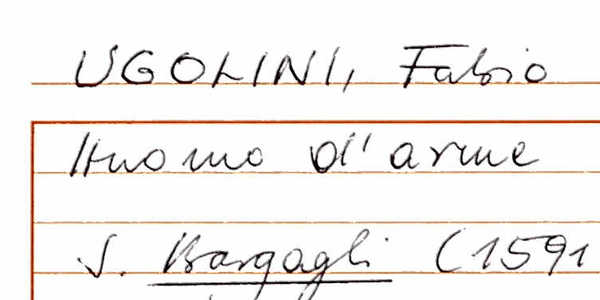 UGOLINI, Fabio
Huomo d'arme
S. Bargagli (1591